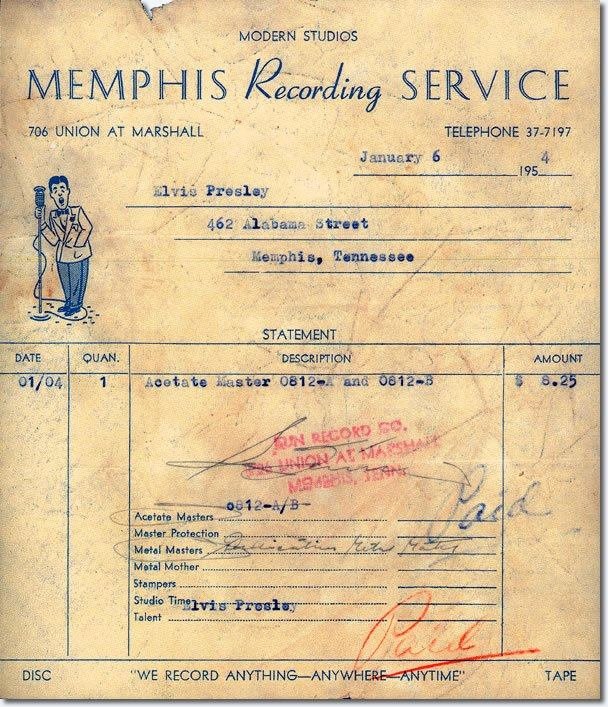 MODERN STUDIOS
MEMPHIS Recording SERVICE
706 UNION AT MARSHALL TELEPHONE 37-7197
January 6 1954
Elvis Presley
462 Alabama Street
Memphis, Tennessee
STATEMENT
DATE QUAN. DESCRIPTION AMOUNT
01/04 1 Acetate Master 0812-A and 0812-B $ 8.25
SUN RECORD CO.
706 UNION AT MARSHALL
MEMPHIS, TENN.
Paid
0812-A/B-
Acetate Masters
Master Protection
Metal Masters
Metal Mother
Stampers
Studio Time
Elvis Presley
Talent
Paid
DISC "WE RECORD ANYTHING—ANYWHERE—ANYTIME" TAPE